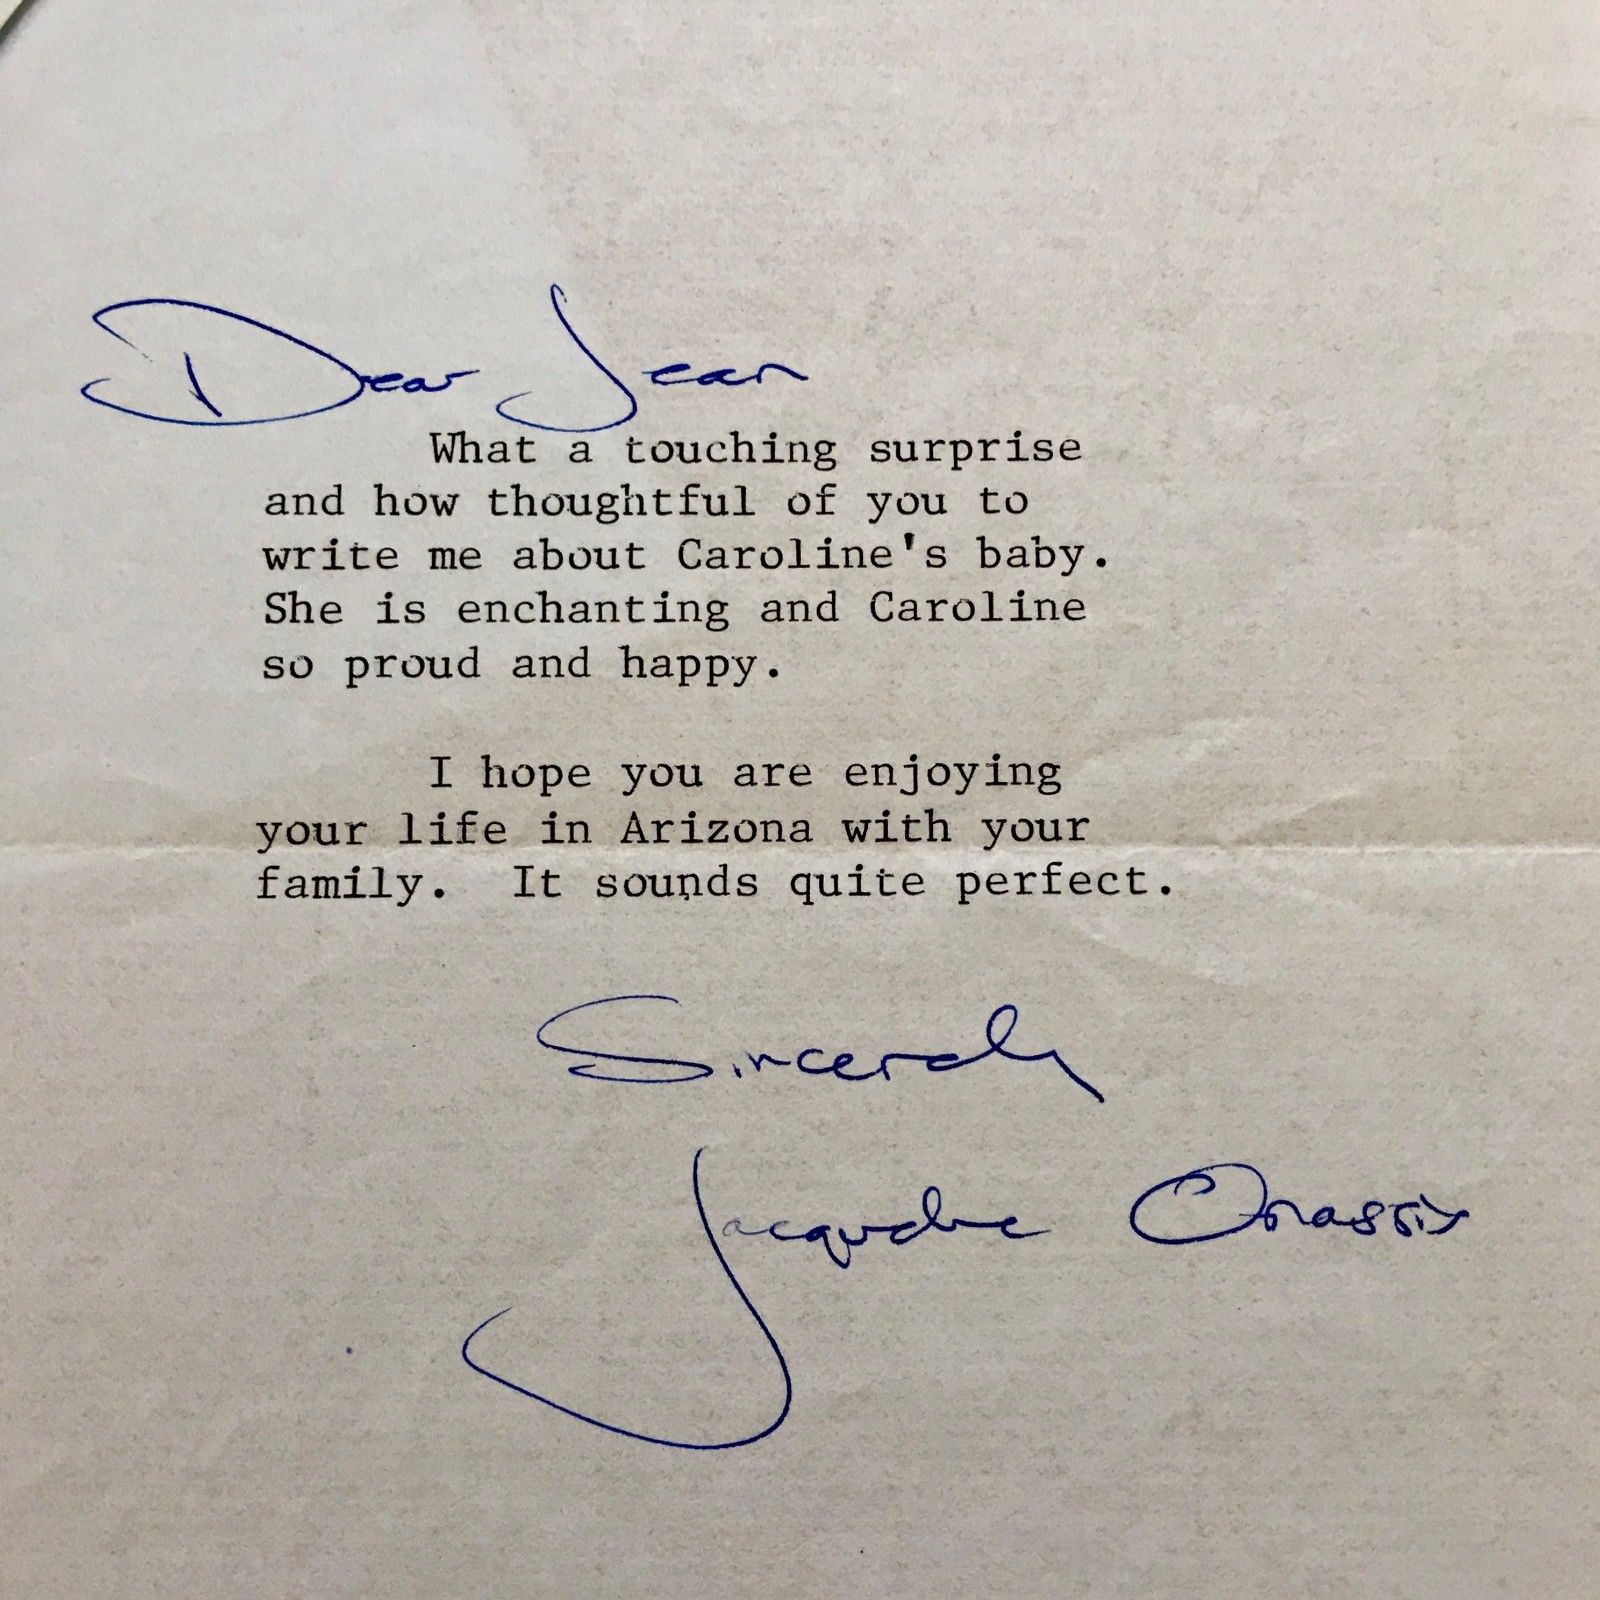 Dear Jean
What a touching surprise
and how thoughtful of you to
write me about Caroline's baby.
She is enchanting and Caroline
so proud and happy.
I hope you are enjoying
your life in Arizona with your
family.  It sounds quite perfect.
Sincerely
Jacqueline Onassis